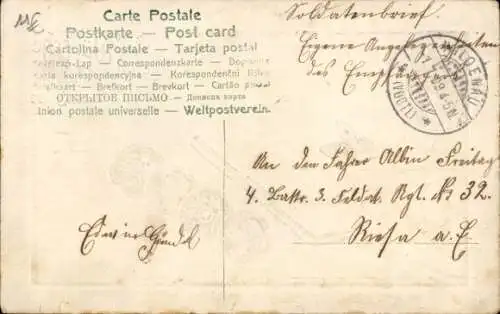 Carte Postale
Postkarte — Post card
Cartolina Postale — Tarjeta postal
Levelező-Lap — Correspondenzkarte —
karta korespondencyjna — Korespondenční lístek
Brefkort — Brevkort — Cartão postal
ОТКРЫТОЕ ПИСЬМО — Дописна карта
Union postale universelle — Weltpostverein.
Soldatenbrief.
Eigene Angelegenheiten
des Empfängers
ODENAU
An den Fahrer Albin Freitag
4. Battr. 3. Feldart. Rgt. No 32.
Riesa a. E.
Edwin